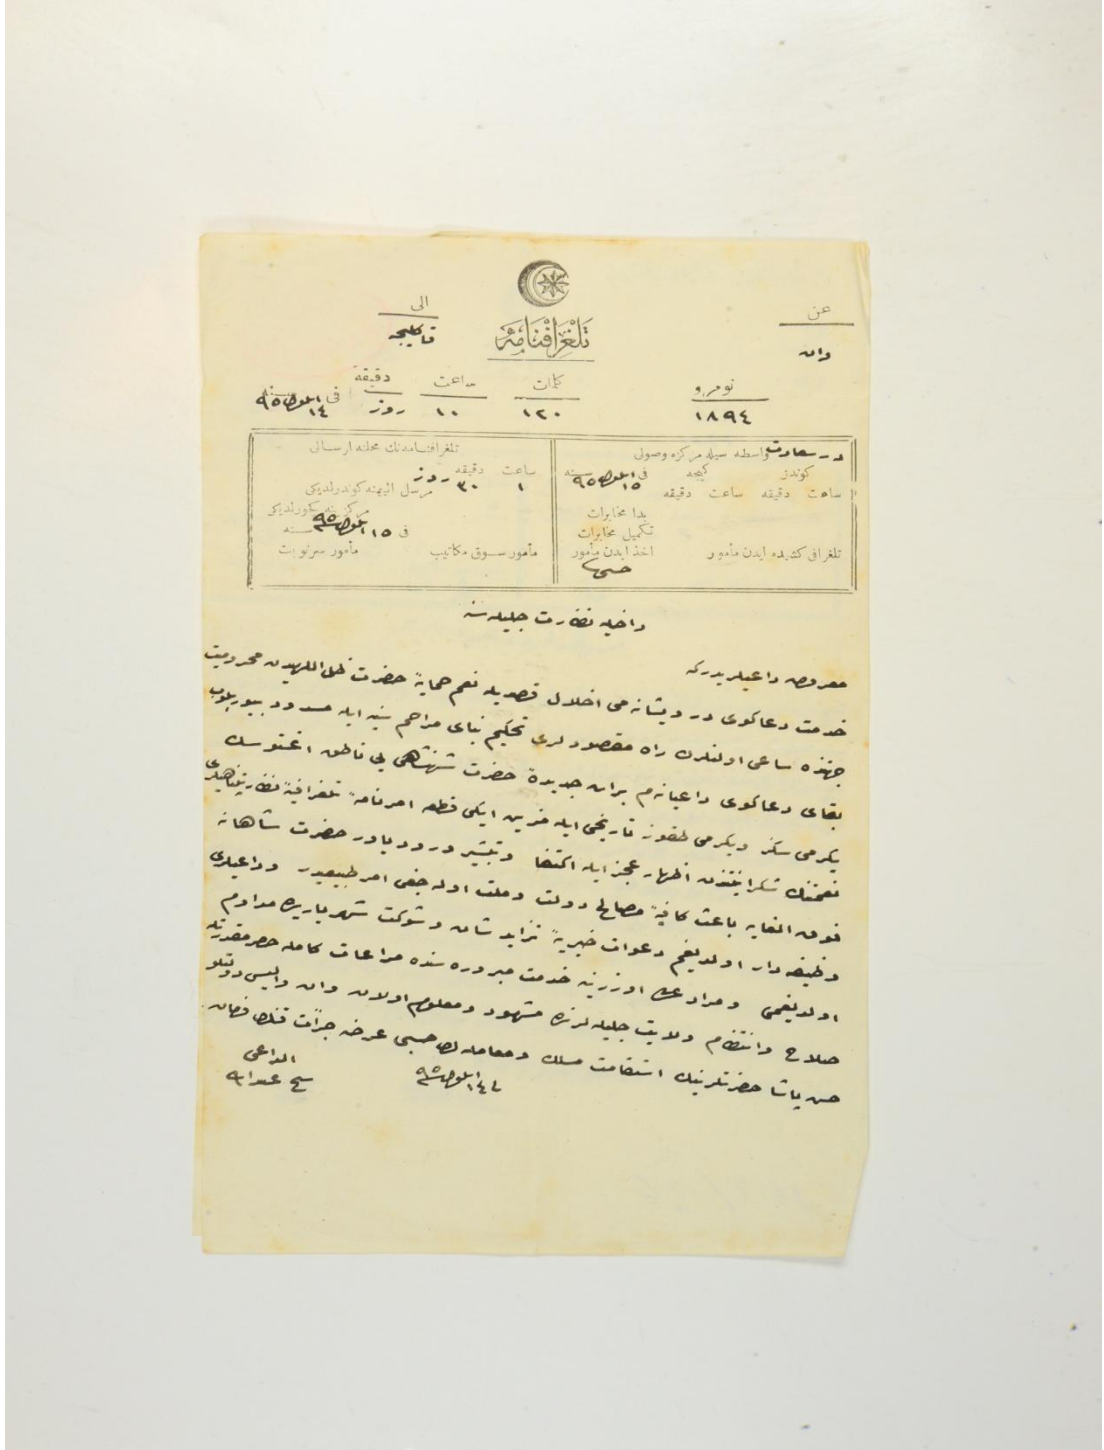 عن
الى
تلغرافنامه
وان
قاكليجه
نومرو
كلمات
ساعت
دقيقه
١٨٩٤
١٢٠
١٠
روز
فى ١٤ ايلول سنه ٩٥
درسعادت واسطه سيله مركزه وصولى
كوندز كيجه فى ١٥ ايلول سنه ٩٥
ساعت دقيقه ساعت دقيقه
بدا مخابرات
تكميل مخابرات
تلغرافى كشيده ايدن مأمور اخذ ايدن مأمور
تلغرافنامه نك محلنه ارسالى
ساعت دقيقه روز
١ ٣٠
مرسل اليهنه كوندرلديكى
فى ١٥ ايلول سنه ٩٥
مأمور سوق مكاتيب مأمور سرنوبت
داخليه نظارت جليله سنه
معروض داعيلريدركه
خدمت دعاكوى درويشانه مى اخلال قصديله نعم حماية حضرت ظل اللهيدن محروميت
جهتنده ساعى اولنلرك راه مقصودلرى تحكيم بناى مراحم سنيه ايله مسدود بيوريلوب
بقاى دعاكوى داعيانه م برات جديدۀ حضرت شهنشاهى يى ناطق اغستوسك
يكرمى سكز ويكرمى طقوز تاريخى ايله ايكى قطعه امرنامۀ تلغرافيۀ نظارتپناهيلرى
نعمتنك شكرانيتندن اظهار عجز ايله اكتفا وتبشير ورود ياور حضرت شاهانه
فوق الغايه باعث كافۀ مصالح دولت وملت اوله جغى امر طبيعيدر وداعيلرى
وظيفه دار اولديغم دعوات خيريۀ تزايد شان وشوكت شهرياريده مداوم
اولديغمى ومرادعك اوزرينه خدمت مبروره سنده مراعات كامله حصر مقدرتله
صلاح وانتظام ولايت جليله لرنده مشهود ومعلوم اولان وان واليسى دولتلو
حسن پاشا حضرتلرينك استقامت مسلك ومعامله لرى حسبى عرضه جرأت قلندى فرمان
فى ١٤ ايلول سنه ٩٥
الداعى
شيخ عبدالله